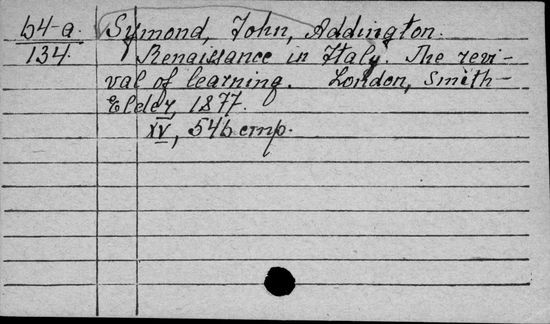 b4-a. Symond, John, Addington.
134. Renaissance in Italy. The revi-
val of learning. London, Smith-
Elder, 1877.
XV, 546 cmp.